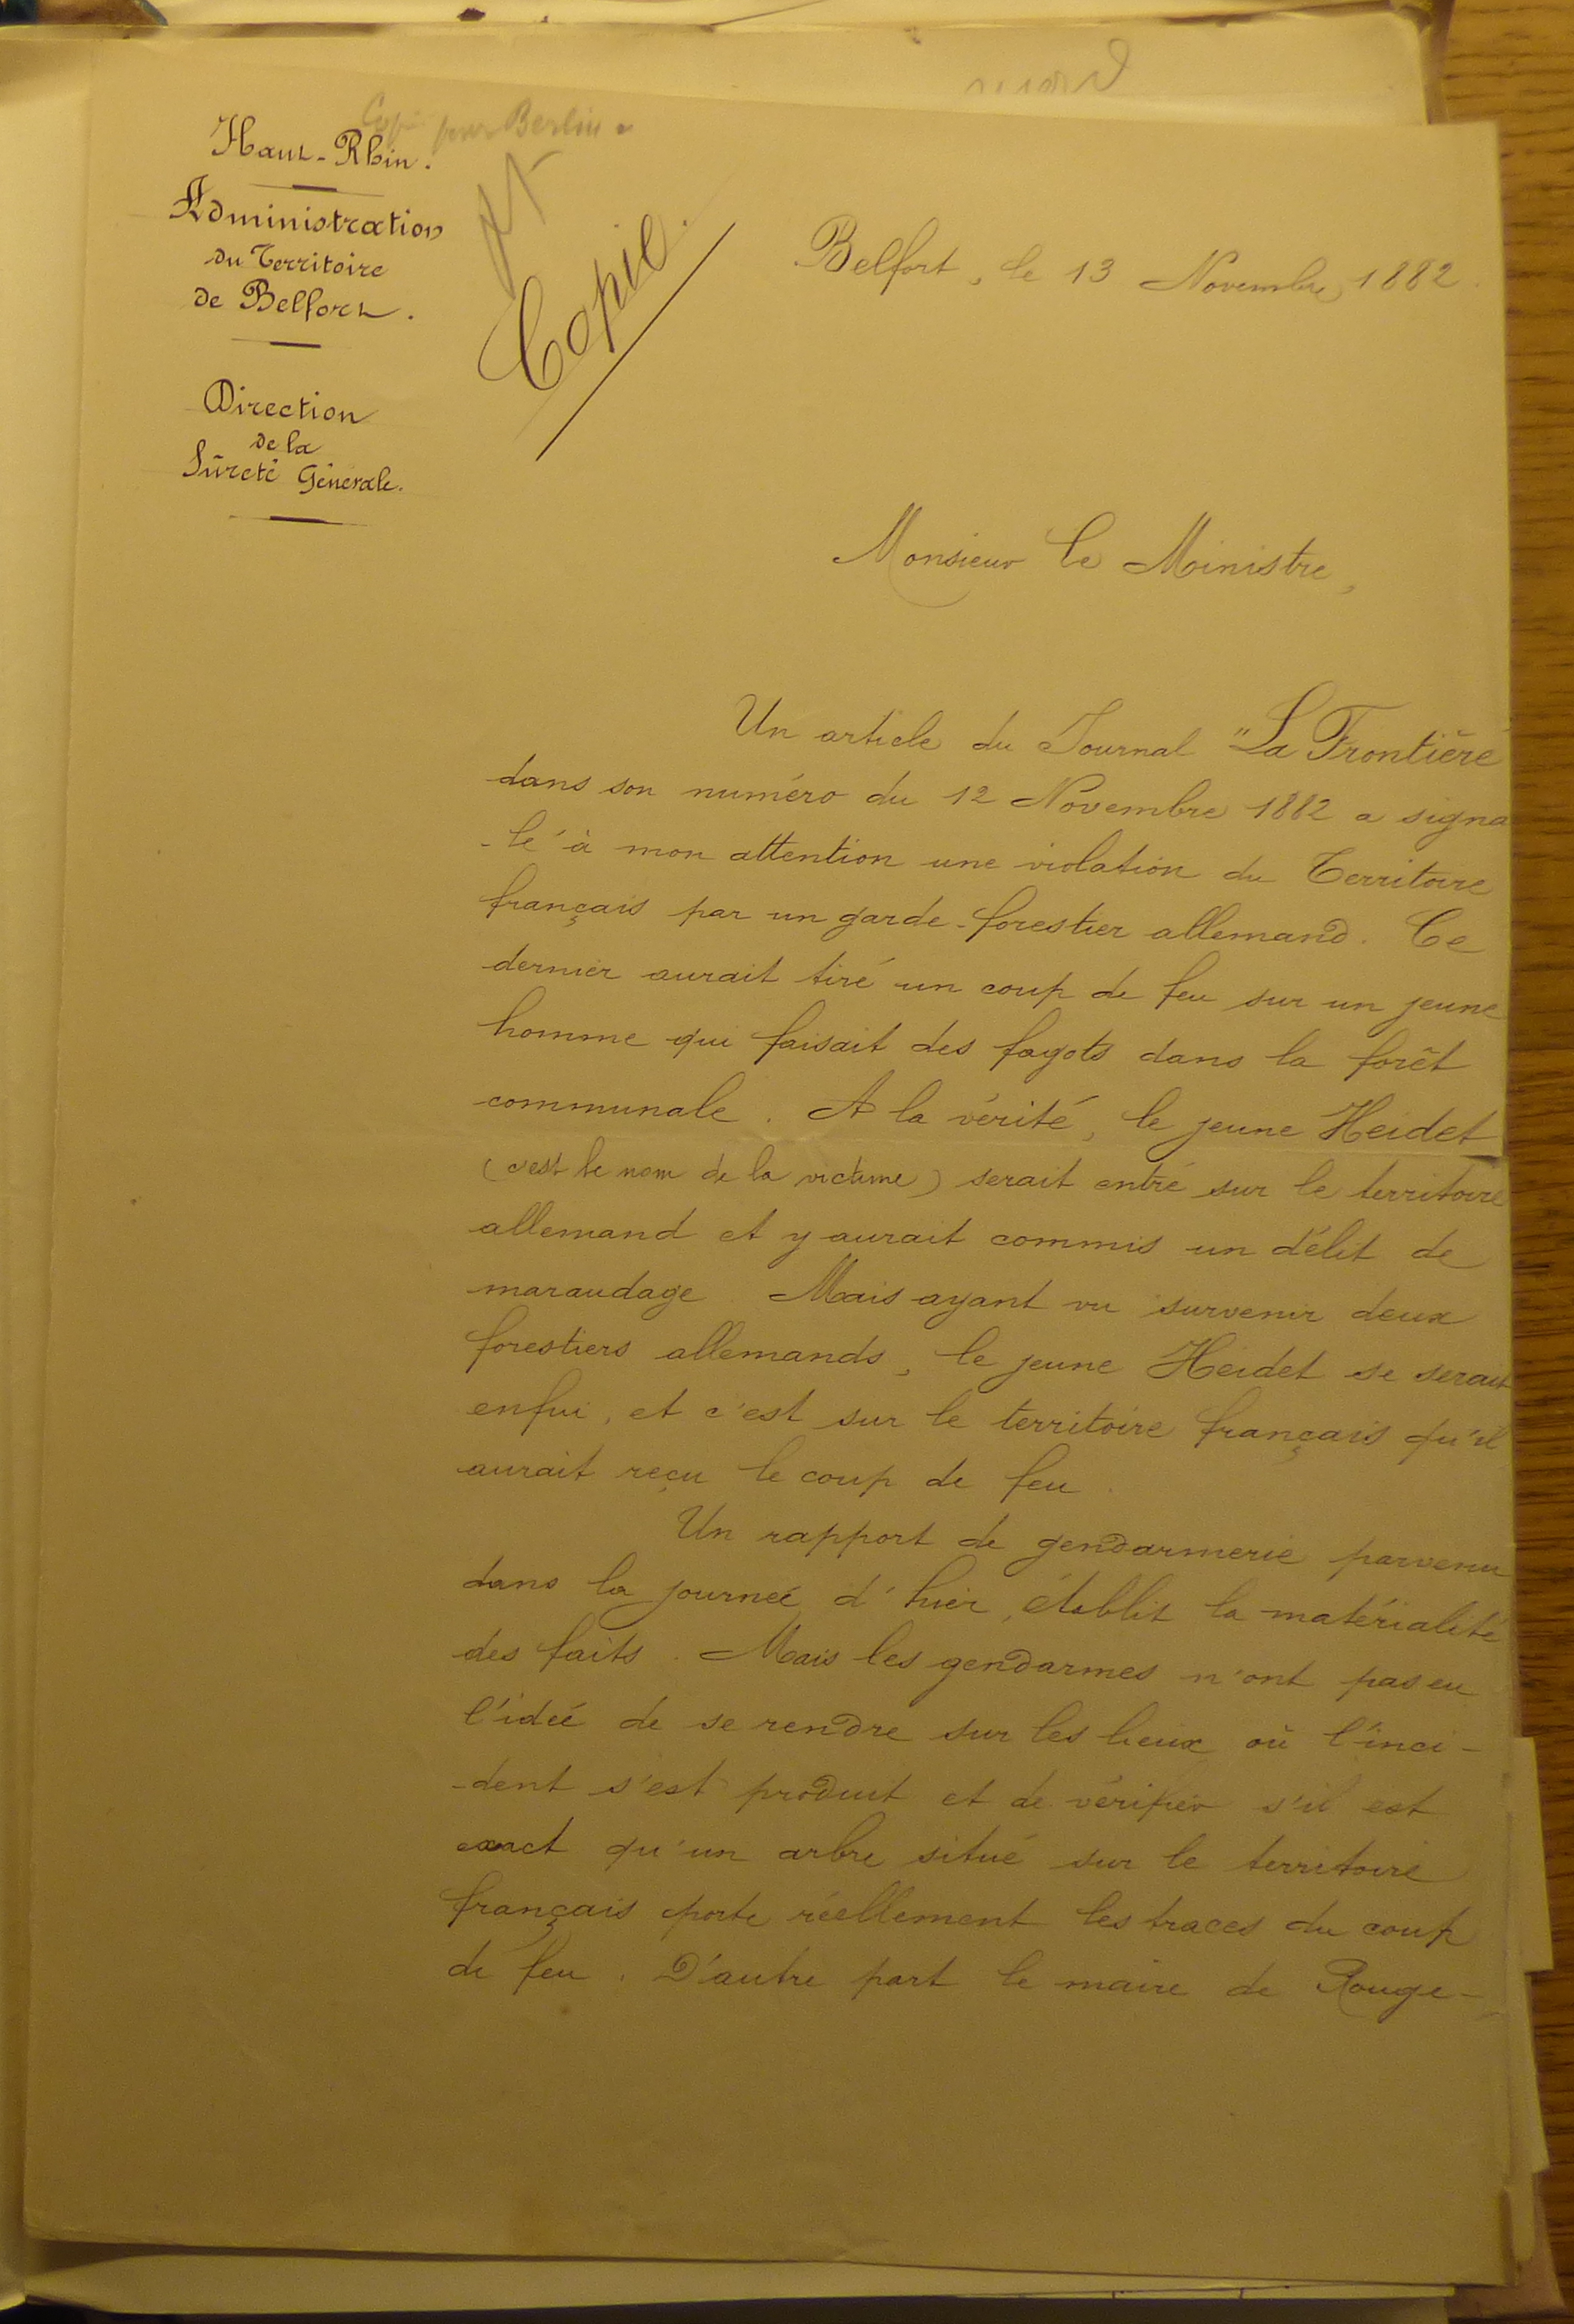 Copie pour Berlin
Haut-Rhin.
Administration
du Territoire
de Belfort.
Direction
de la
Sûreté Générale.
Copie.
Belfort, le 13 Novembre 1882.
Monsieur le Ministre,
Un article du Journal "La Frontière
dans son numéro du 12 Novembre 1882 a signa
-lé à mon attention une violation du Territoire
français par un garde-forestier allemand. Ce
dernier aurait tiré un coup de feu sur un jeune
homme qui faisait des fagots dans la forêt
communale. A la vérité, le jeune Heidet
(c'est le nom de la victime) serait entré sur le territoire
allemand et y aurait commis un délit de
maraudage. Mais ayant vu survenir deux
forestiers allemands, le jeune Heidet se serait
enfui, et c'est sur le territoire français qu'il
aurait reçu le coup de feu.
Un rapport de gendarmerie parvenu
dans la journée d'hier, établit la matérialité
des faits. Mais les gendarmes n'ont pas eu
l'idée de se rendre sur les lieux où l'inci-
-dent s'est produit et de vérifier s'il est
exact qu'un arbre situé sur le territoire
français porte réellement les traces du coup
de feu. D'autre part le maire de Rouge-